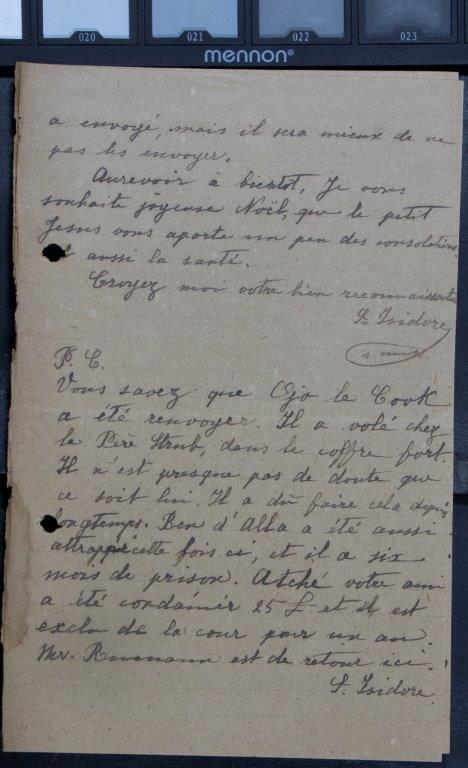 020 021 022 023
mennon®
a envoyé, mais il sera mieux de ne
pas les envoyer.
Aurevoir à bientot. Je vous
souhaite joyeuse Noël, que le petit
Jesus vous aporte un peu des consolations
et aussi la santé.
Croyez moi votre bien reconnaissante
Sr Isidore
P. C.
Vous savez que Ojo le Cook
a été renvoyer. Il a volé chez
le Père Strub, dans le coffre fort.
Il n'est presque pas de doute que
ce soit lui. Il a dû faire cela depuis
longtemps. Ben d'Alla a été aussi
attrappé cette fois ci, et il a six
mois de prison. Atché votre ami
a été condamér 25 £ et il est
exclu de la cour pour un an.
est de retour ici.
S. Isidore